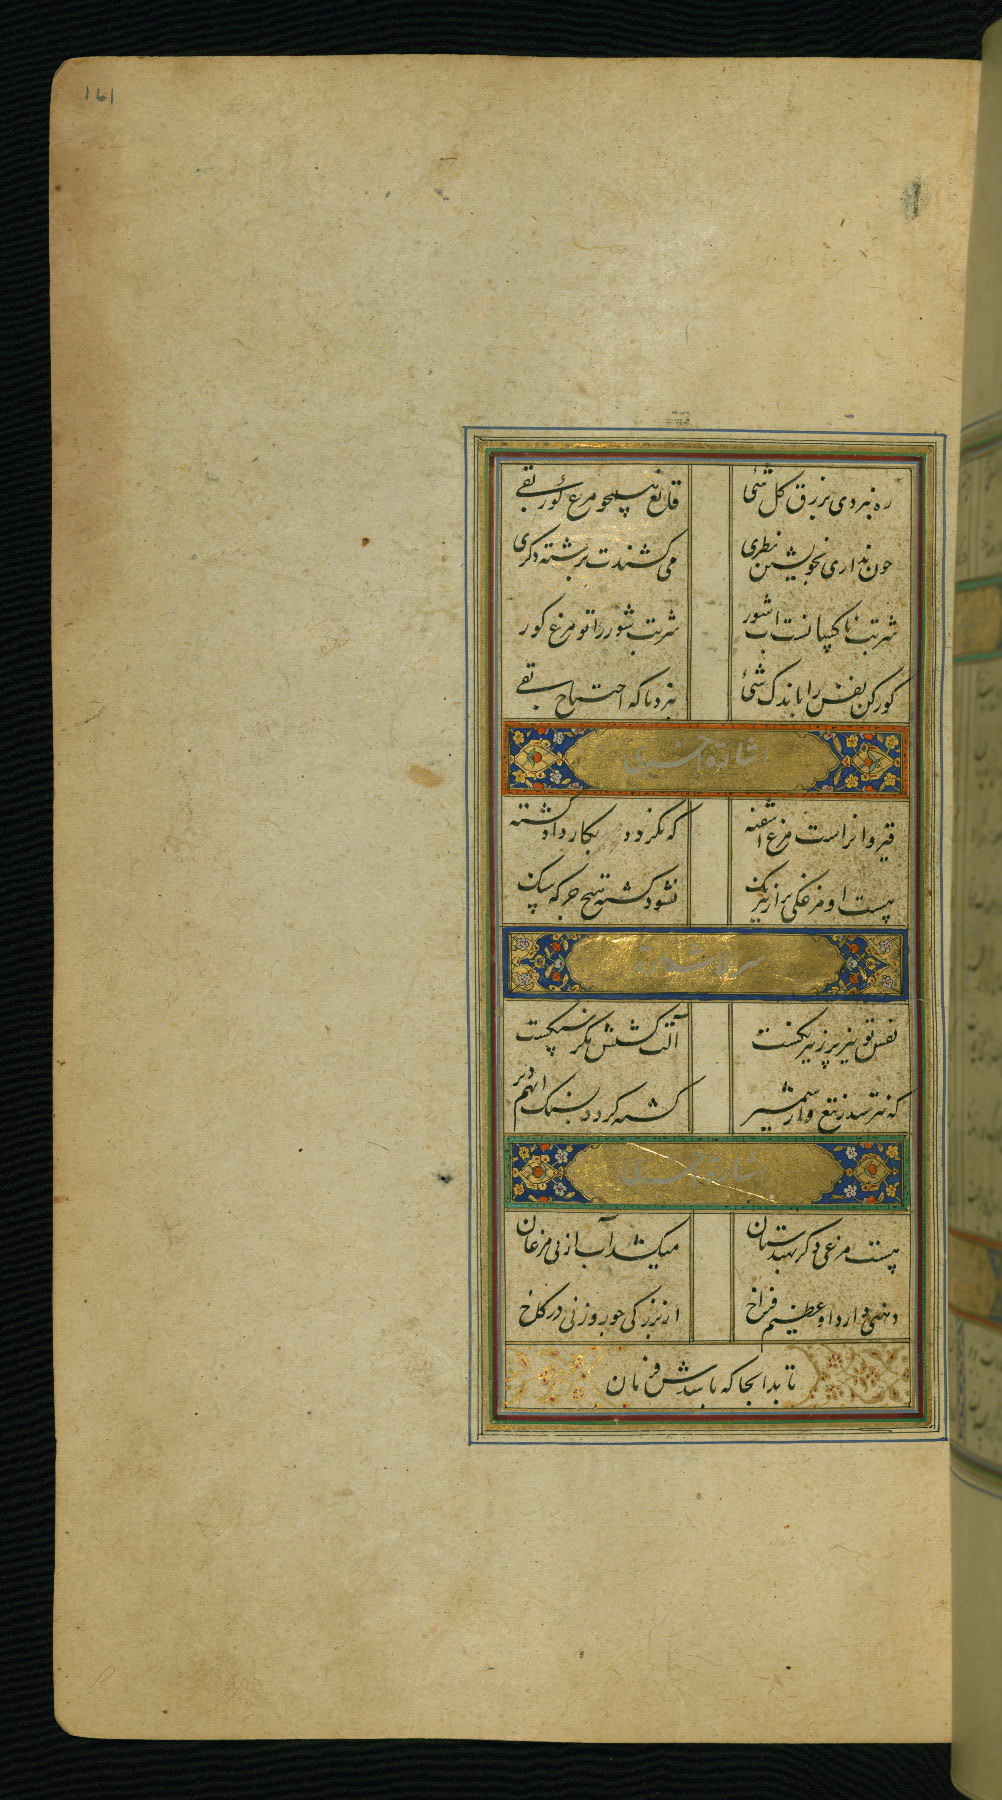 ۱۶۱
ره نبردی برزق کل شئ قانع نیی همچو مرغ کور بقی
چون نداری بخویشتن نظری می کشندت برشته دکری
شربت ناکهانست آب شور شربت شور را تو مرغ کور
کور کن نفس را باندک شئ نبرد تا که احتیاج بقی
اشارة اخری
قیروانراست مرغ آشفته که نکردد بکارد او کشته
هست او مرغکی پر از نیرنک نشود کشته هیچ جز که بسنک
سر الاشارة
نفس تو نیز پر ز نیرنکست آلت کشتنش مکر سنکست
که نترسد ز تیغ و از شمشیر کشته کردد بسنک آنهم دیر
اشارة اخری
هست مرغی دکر بهندستان میکشد آب از پی مرغان
دهنی دارد او عظیم فراخ از بزرکی چو روزنی در کاخ
تا بدانجا که باشدش فرمان